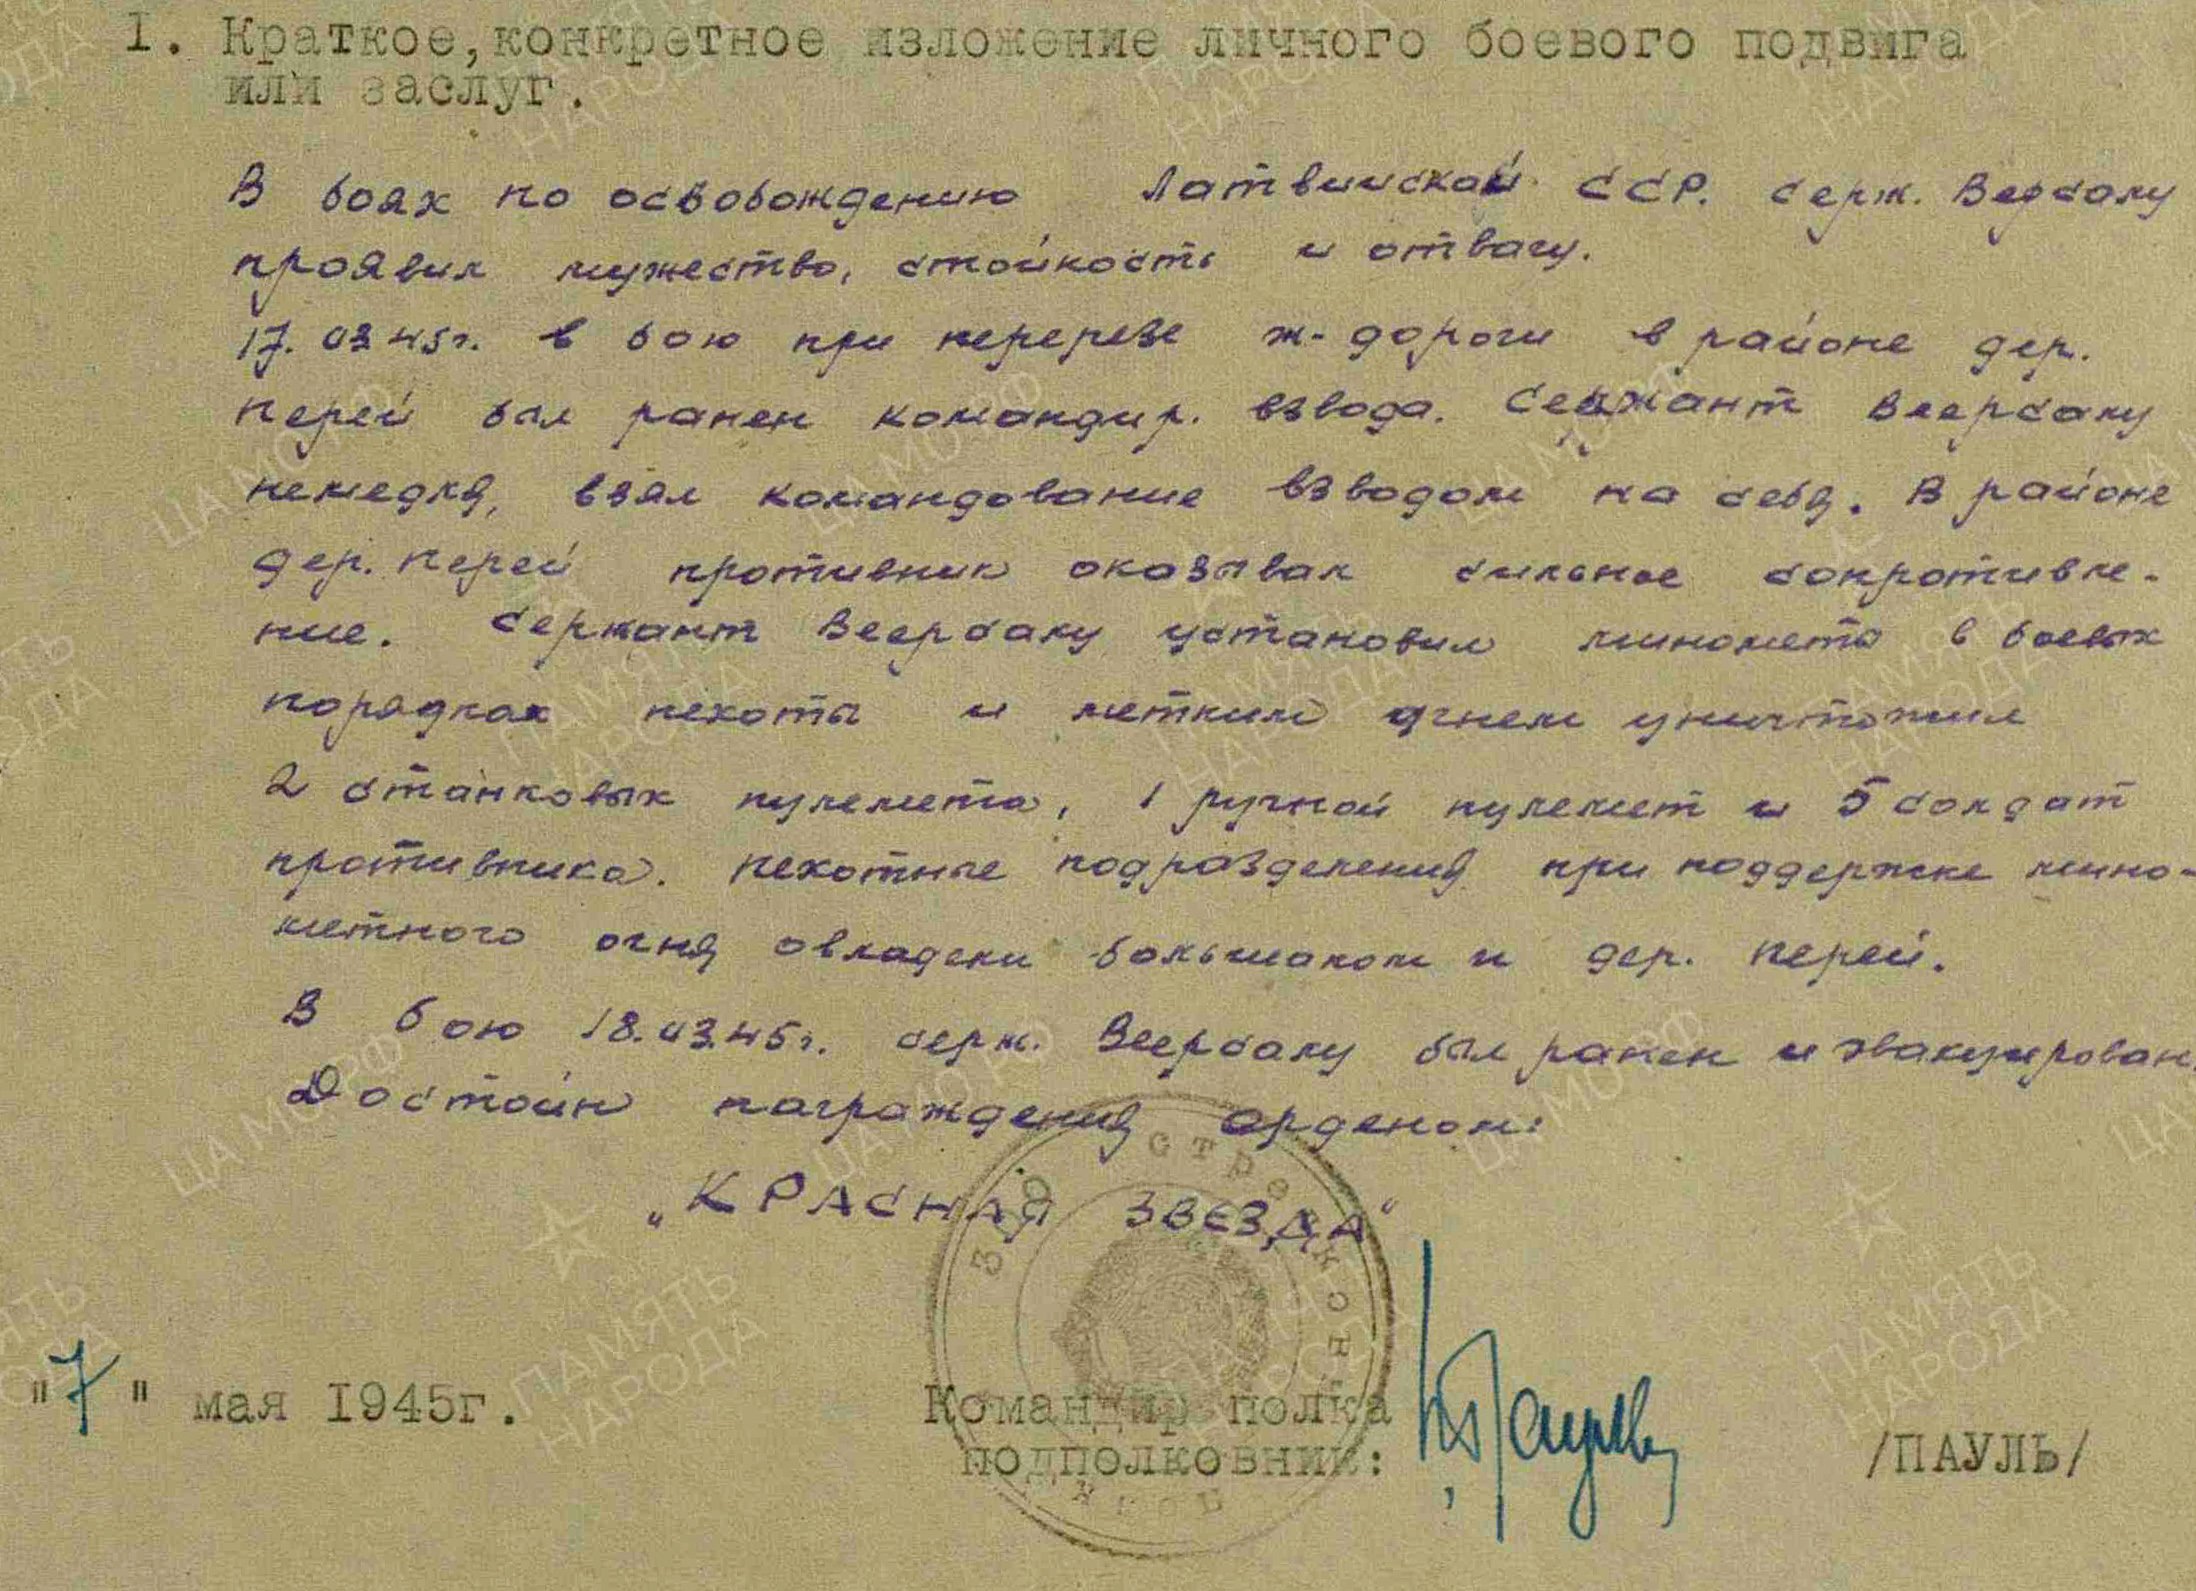 I. Краткое, конкретное изложение личного боевого подвига
или заслуг.
В боях по освобождению Латвийской ССР. серж. Веерсалу
проявил мужество, стойкость и отвагу.
17.03.45г. в бою при перерезе ж-дороги в районе дер.
Перей был ранен командир. взвода. Сержант Веерсалу
немедля, взял командование взводом на себя. В районе
дер. Перей противник оказывал сильное сопротивле-
ние. Сержант Веерсалу установил минометы в боевых
порядках пехоты и метким огнем уничтожил
2 станковых пулемета, 1 ручной пулемет и 5 солдат
противника. Пехотные подразделения при поддержке мино-
метного огня овладели большаком и дер. Перей.
В бою 18.03.45г. серж. Веерсалу был ранен и эвакуирован.
Достоин награждения орденом:
„КРАСНАЯ ЗВЕЗДА"
"7" мая 1945г.
Командир полка
подполковник:
/ПАУЛЬ/
ПАМЯТЬ НАРОДА
ЦАМО РФ